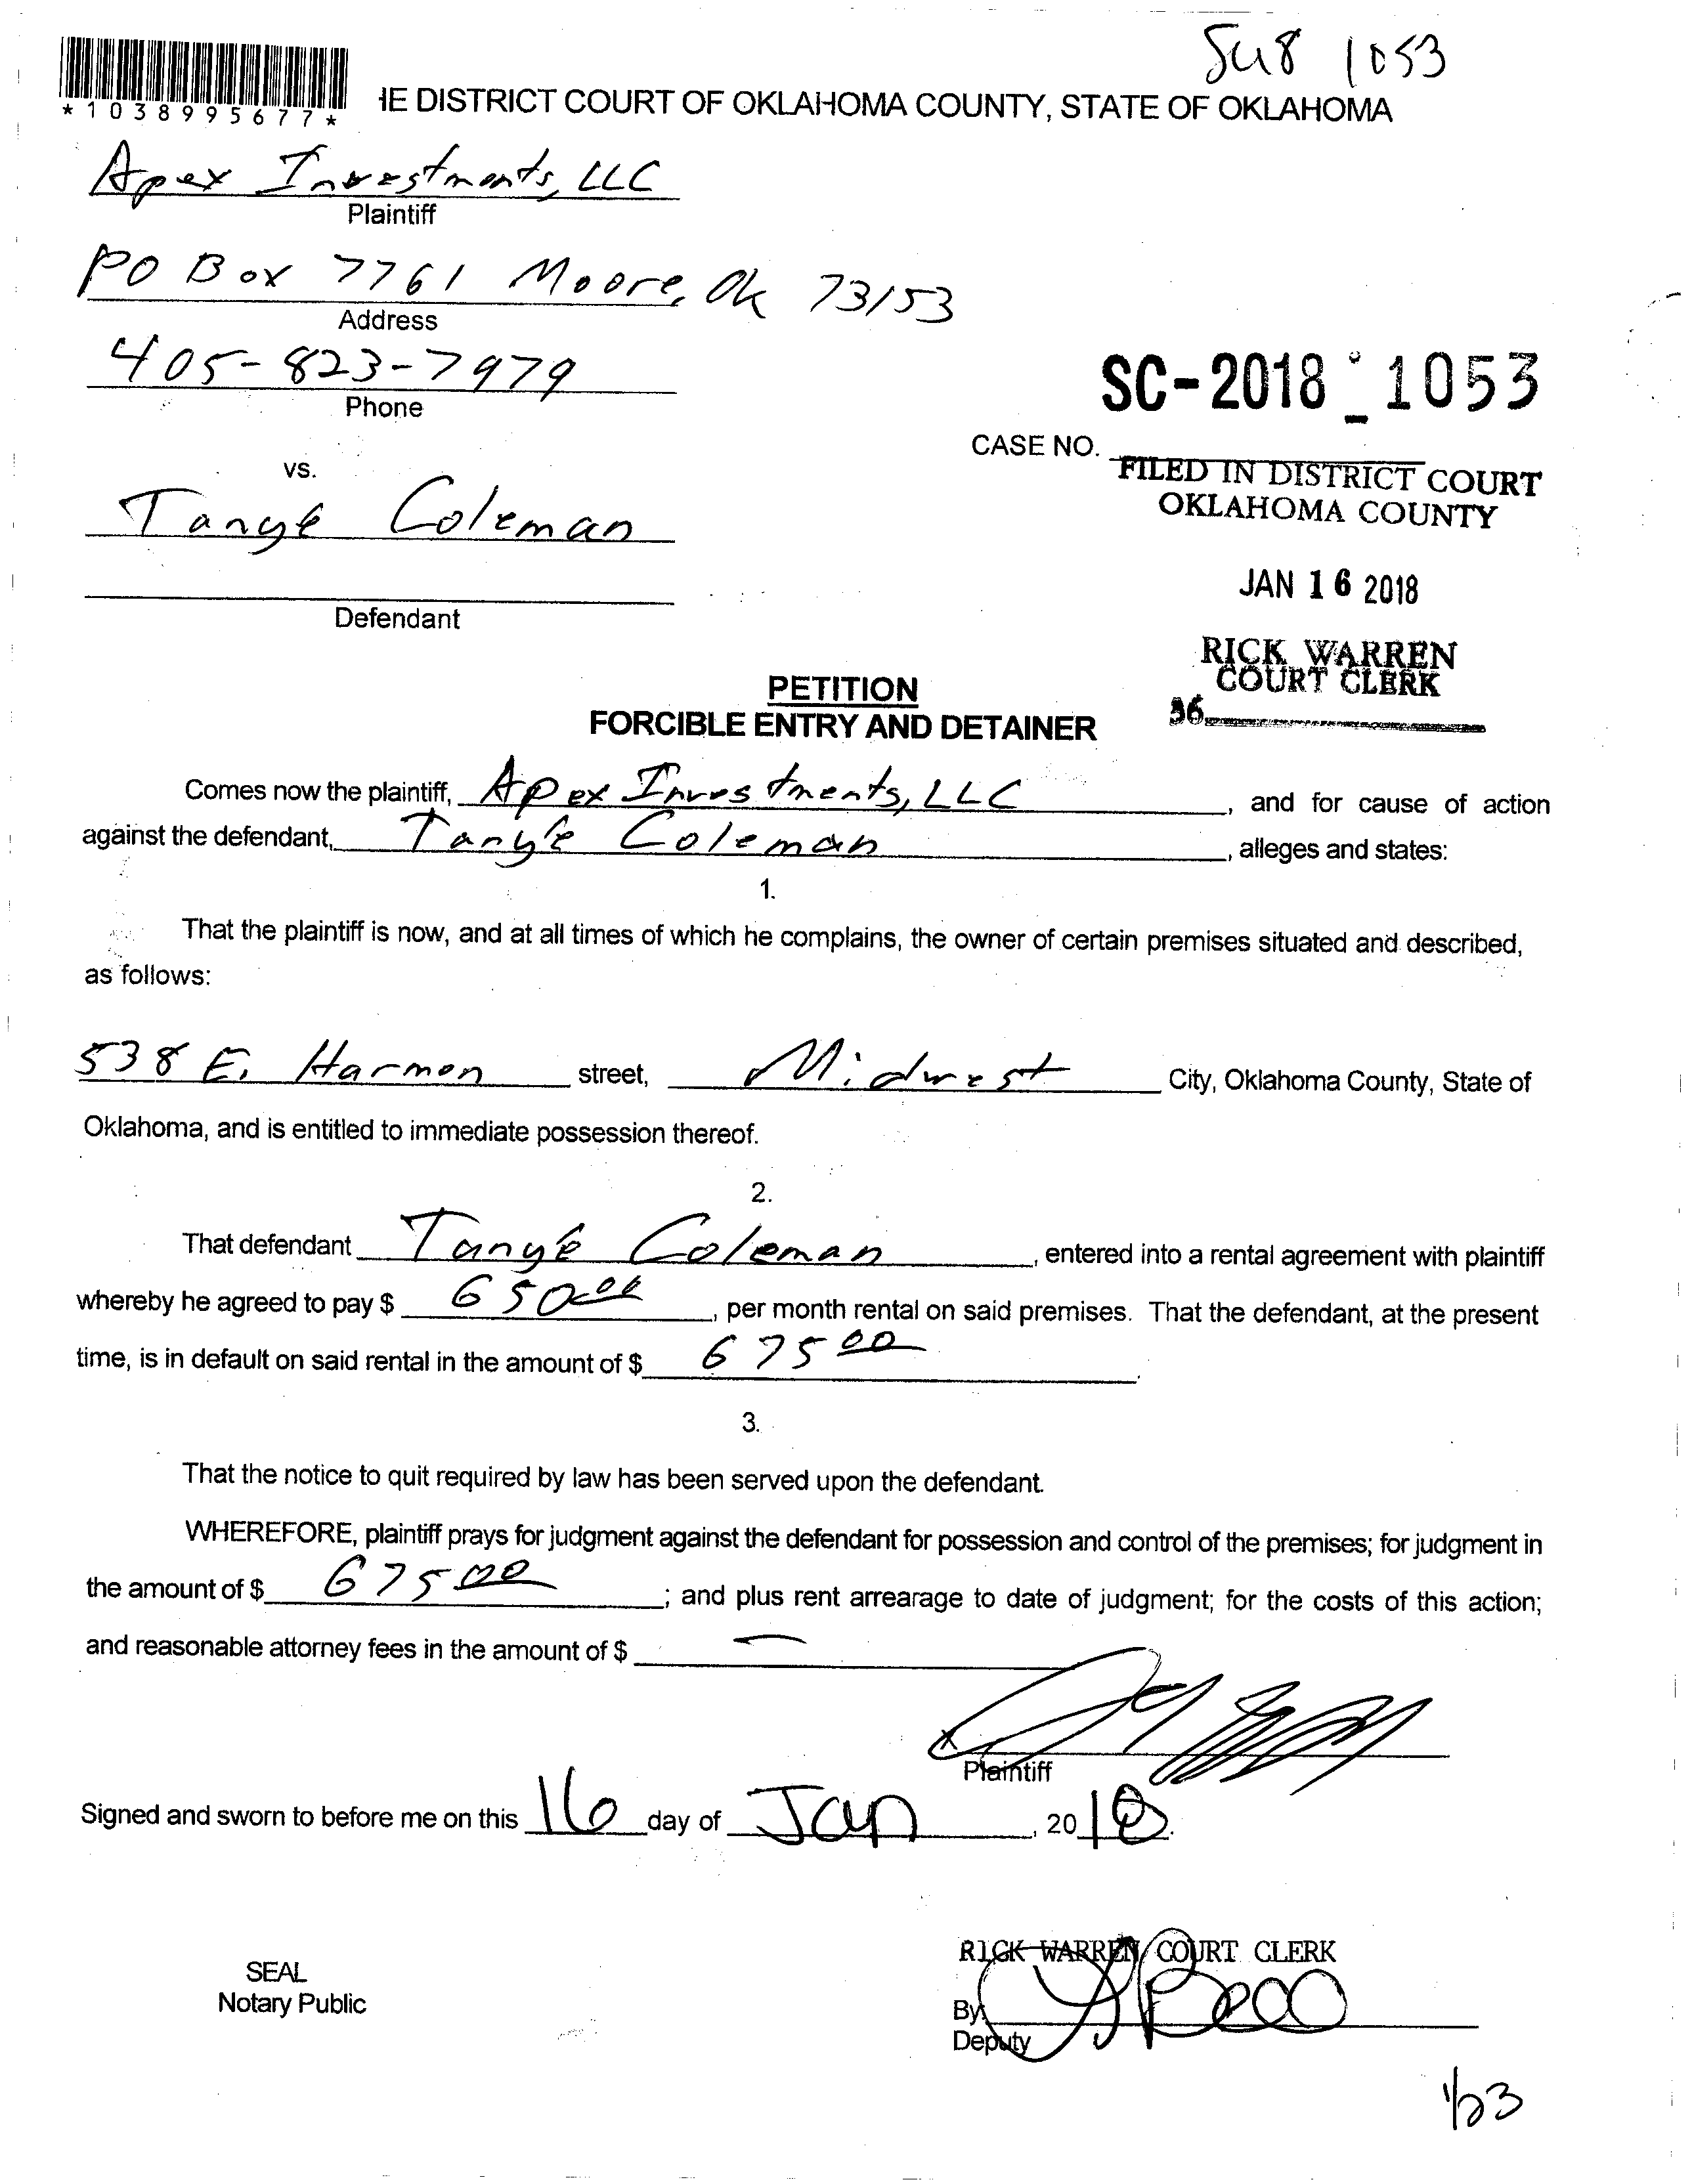 SC18 1053
*1038995677*
IE DISTRICT COURT OF OKLAHOMA COUNTY, STATE OF OKLAHOMA
Apex Investments, LLC
Plaintiff
PO Box 7761 Moore, Ok 73153
Address
405-823-7979
Phone
SC-2018-1053
CASE NO.
FILED IN DISTRICT COURT
OKLAHOMA COUNTY
vs.
Tanye Coleman
JAN 16 2018
Defendant
RICK WARREN
COURT CLERK
36
PETITION
FORCIBLE ENTRY AND DETAINER
Comes now the plaintiff, Apex Investments, LLC, and for cause of action
against the defendant, Tanye Coleman, alleges and states:
1.
That the plaintiff is now, and at all times of which he complains, the owner of certain premises situated and described,
as follows:
538 E. Harmon street, Midwest City, Oklahoma County, State of
Oklahoma, and is entitled to immediate possession thereof.
2.
That defendant Tanye Coleman, entered into a rental agreement with plaintiff
whereby he agreed to pay $ 650.00, per month rental on said premises. That the defendant, at the present
time, is in default on said rental in the amount of $ 675 00.
3.
That the notice to quit required by law has been served upon the defendant.
WHEREFORE, plaintiff prays for judgment against the defendant for possession and control of the premises; for judgment in
the amount of $ 675 00; and plus rent arrearage to date of judgment; for the costs of this action;
and reasonable attorney fees in the amount of $ —
X
Plaintiff
Signed and sworn to before me on this 16 day of Jan, 2018.
RICK WARREN COURT CLERK
SEAL
Notary Public
By:
Deputy
1/23